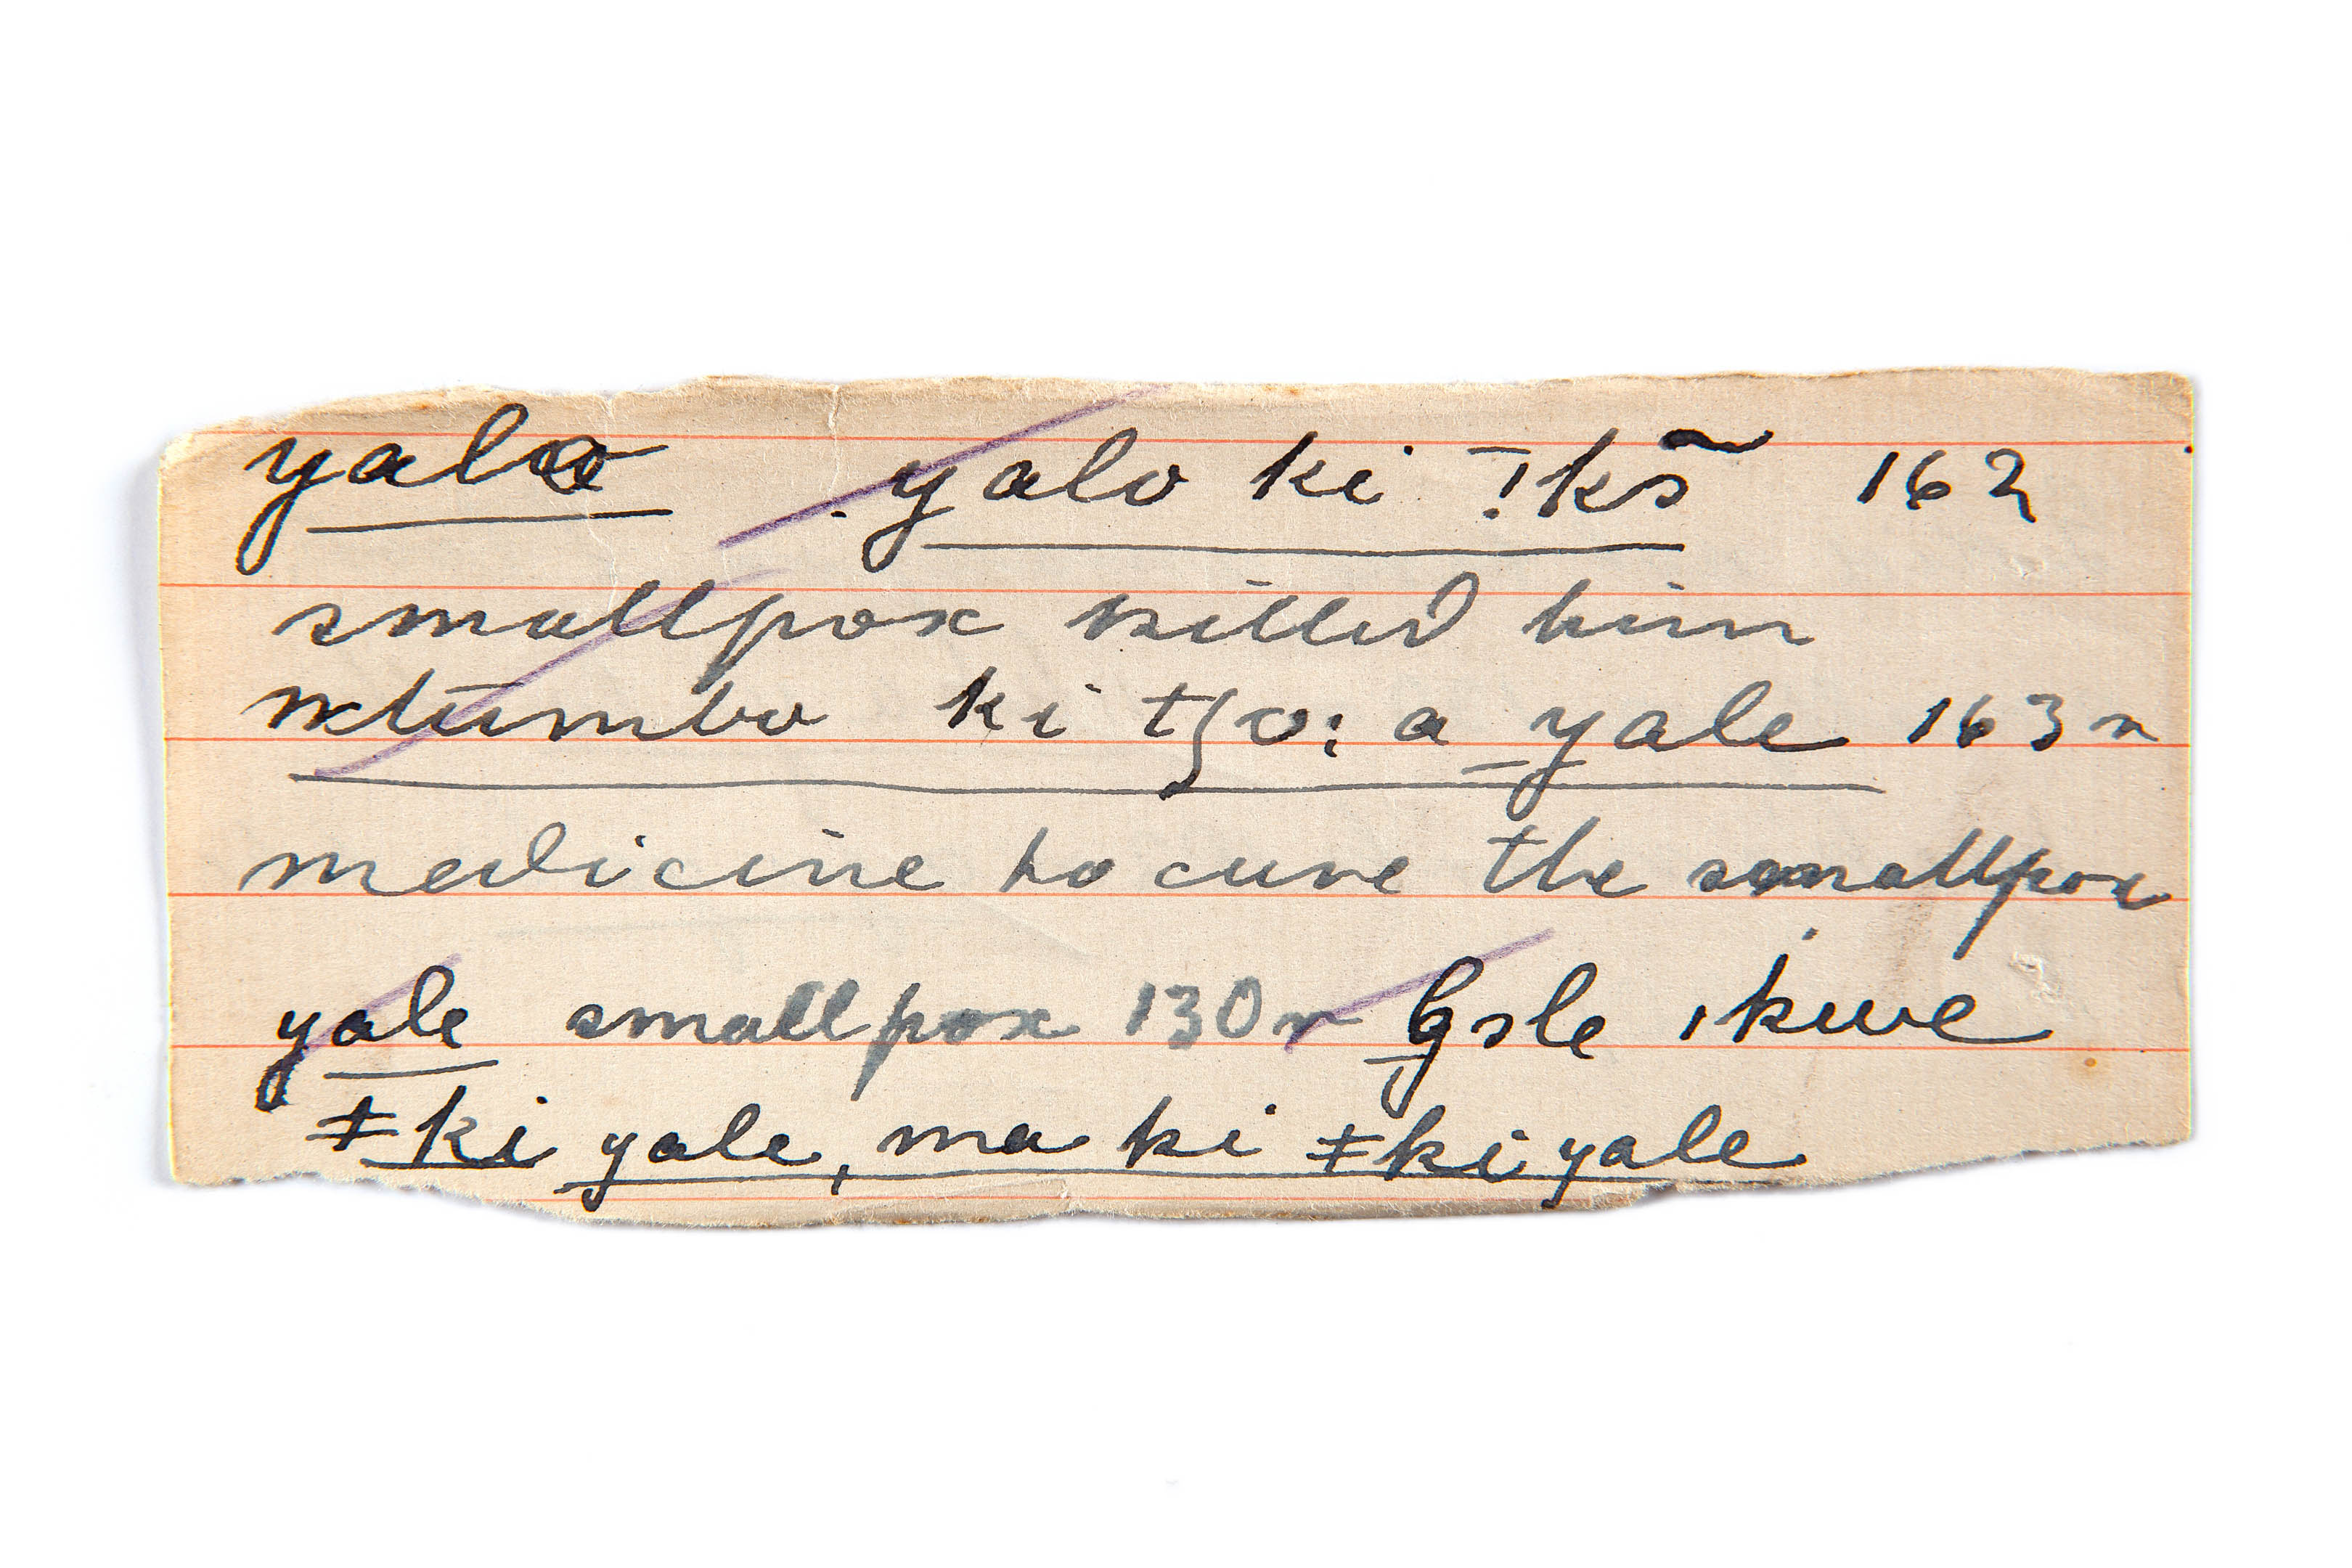 yalo yalo ki !kõ 162
smallpox killed him
ntumbo ki tʃo: a yale 163 r
medicine to cure the smallpox
yale smallpox 130 r ɡɔle ǀkwe
ǂki yale, ma ki ǂki yale